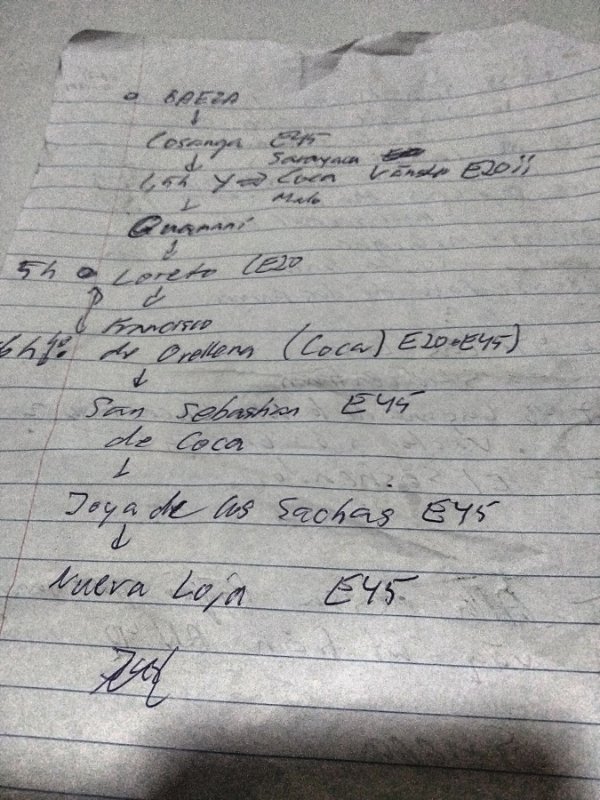 o BAEZA
↓
Cosanga E45
↓ Sarayacu
1,5h Y ⇒ Coca E20 ¡¡
↓ Malo
Guamaní
↓
5h o Loreto (E20
↓
Francisco
de Orellena (Coca) E20+E45)
↓
San Sebastian E45
de Coca
↓
Joya de los Sachas E45
↓
Nueva Loja E45